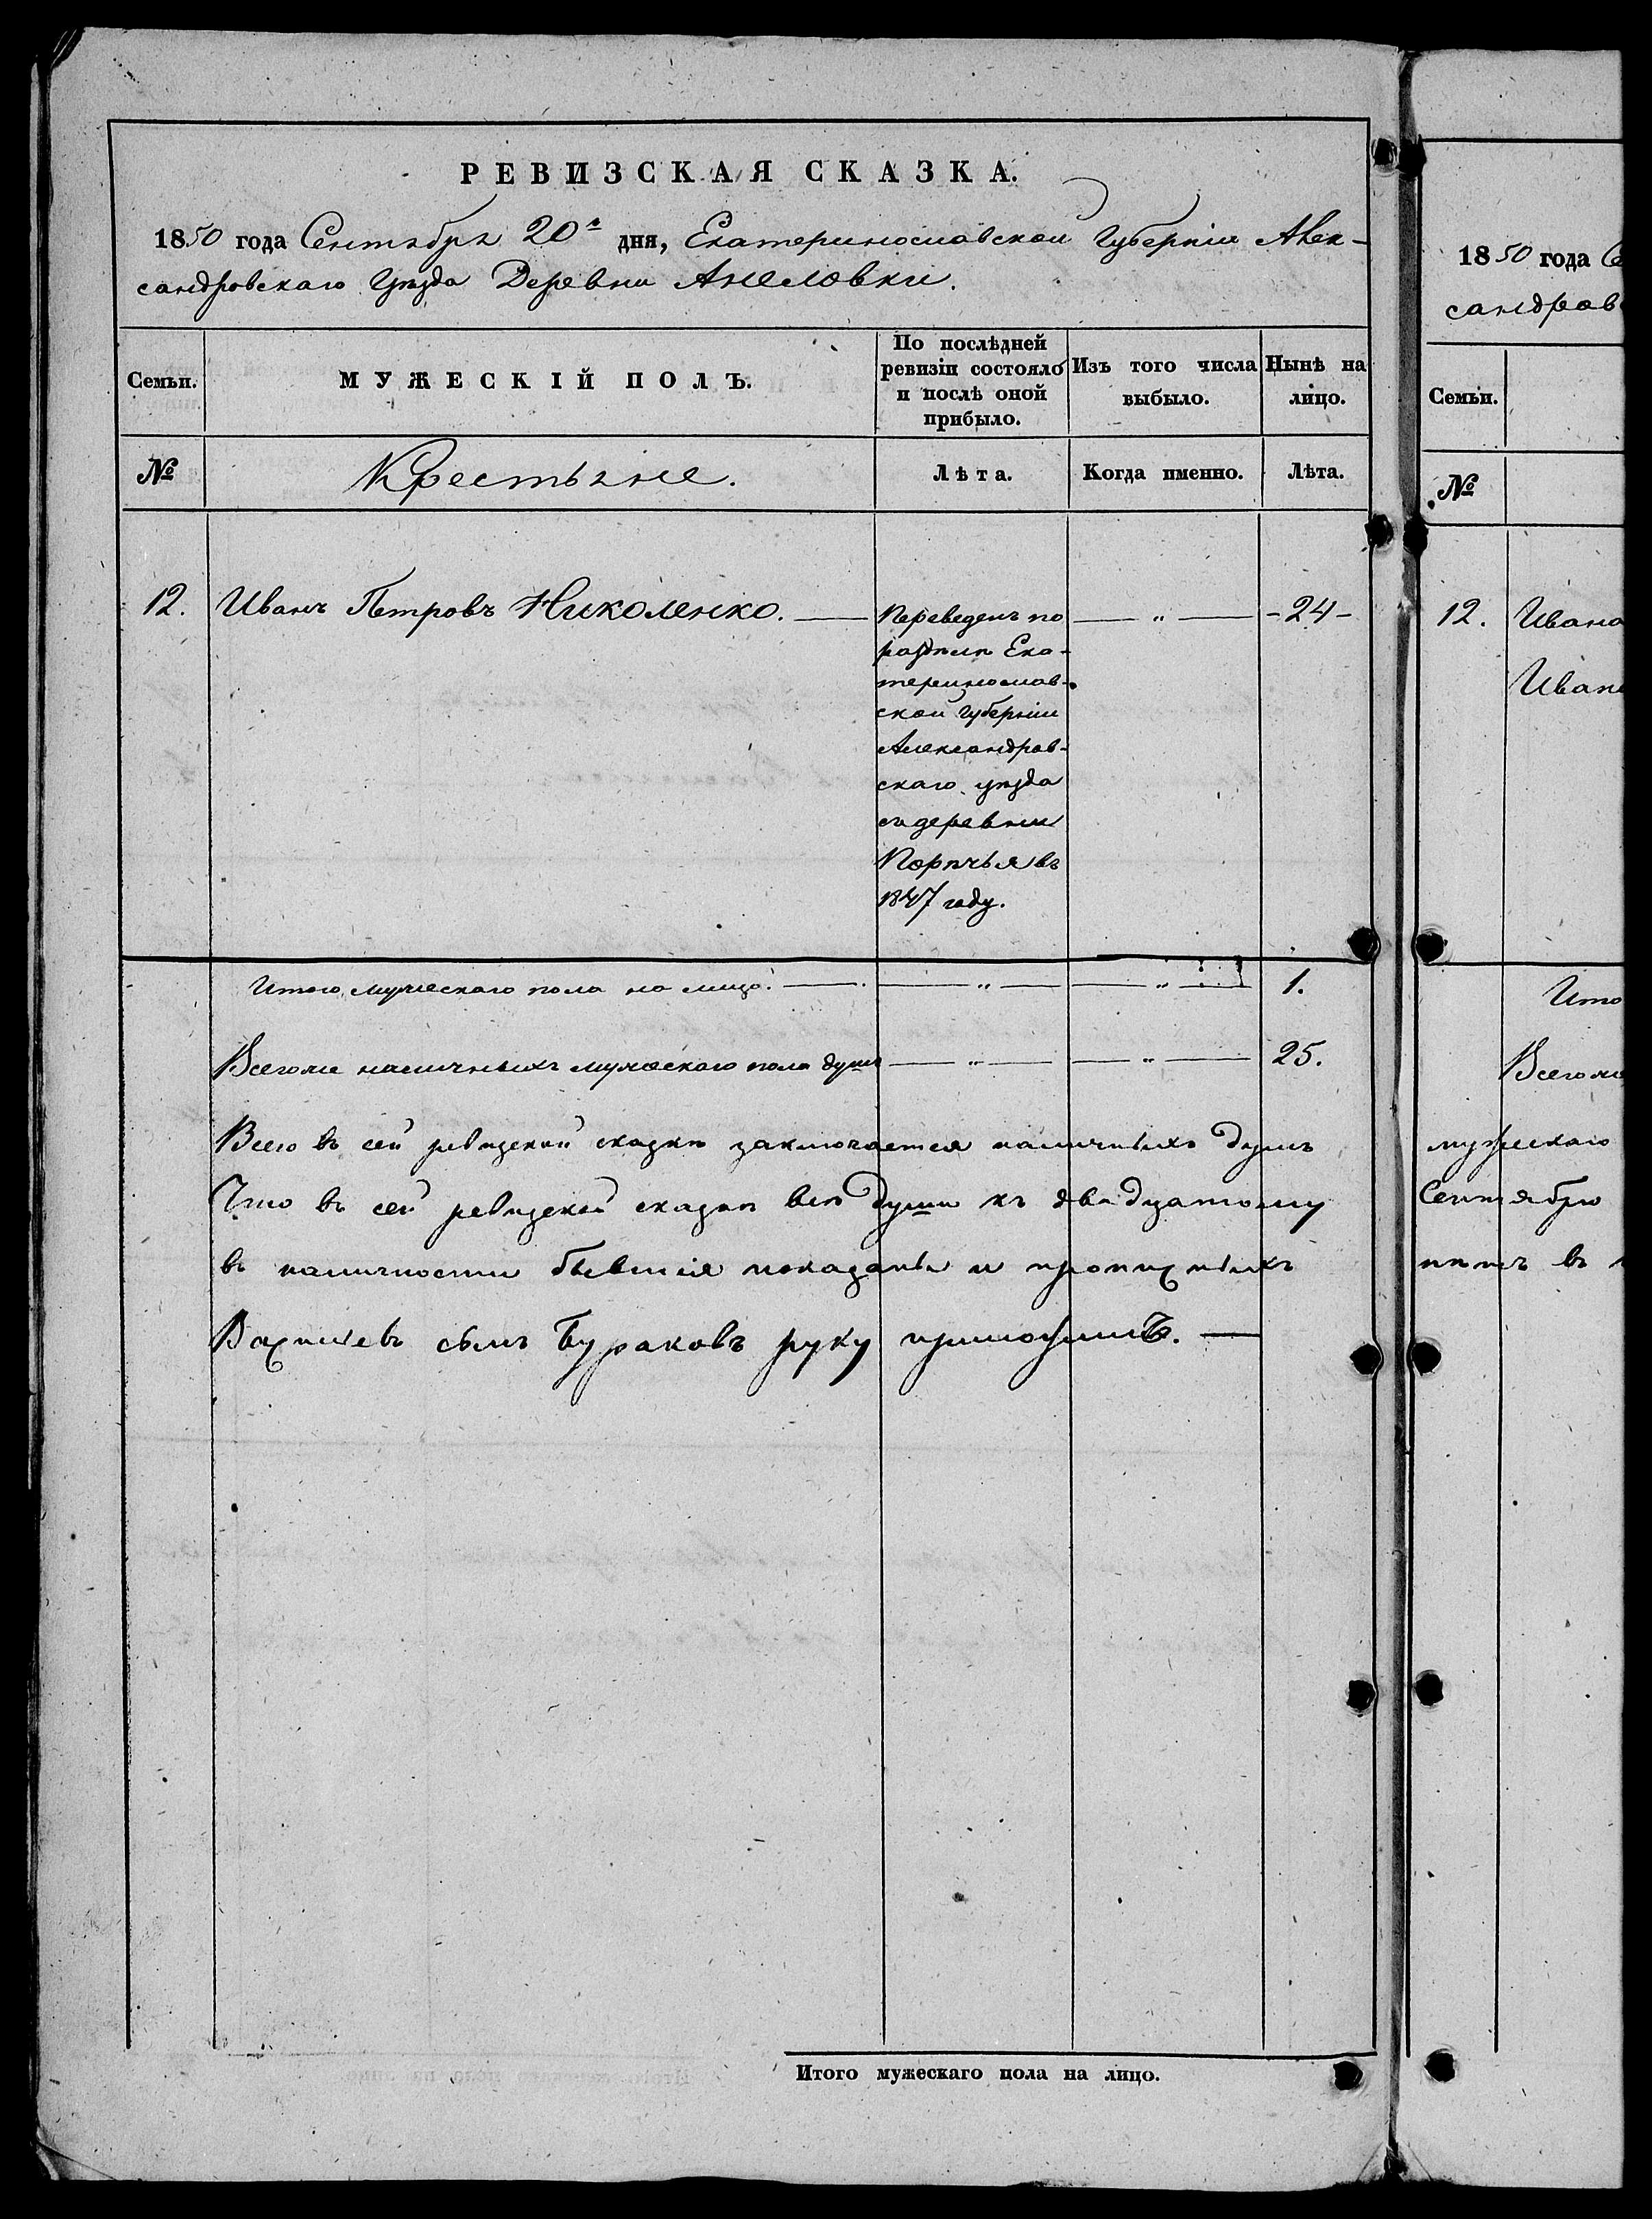 РЕВИЗСКАЯ СКАЗКА.
1850 года Сентября 20го дня, Екатеринославской Губерніи Алек-
сандровскаго Уѣзда Деревни Анеловки.
Семьи.
МУЖЕСКІЙ ПОЛЪ.
По послѣдней
ревизіи состояло
и послѣ оной
прибыло.
Изъ того числа
выбыло.
Нынѣ на
лицо.
№
Крестьяне.
Лѣта.
Когда именно.
Лѣта.
12. Иванъ Петровъ Николенко. — " — -24-
Переведенъ по
раздѣлу Ека-
теринослав-
ской Губерніи
Александров-
скаго уѣзда
съ деревни
Порѣчья въ
1847 году.
Итого мужескаго пола на лицо. — " — " — 1.
Всего же наличныхъ мужескаго пола душъ — " — " — 25.
Всего въ сей ревизской сказкѣ заключается наличныхъ душъ
Что въ сей ревизской сказкѣ всѣ души къ двадцатому
въ наличности бывшія показаны и прописныхъ
сынъ Бураковъ руку приложилъ. —
Итого мужескаго пола на лицо.
1850 года Се
сандров
Семьи.
№
12. Ивана
Иван
Ито
Всего же
мужескаго
Сентябрю
нѣтъ въ